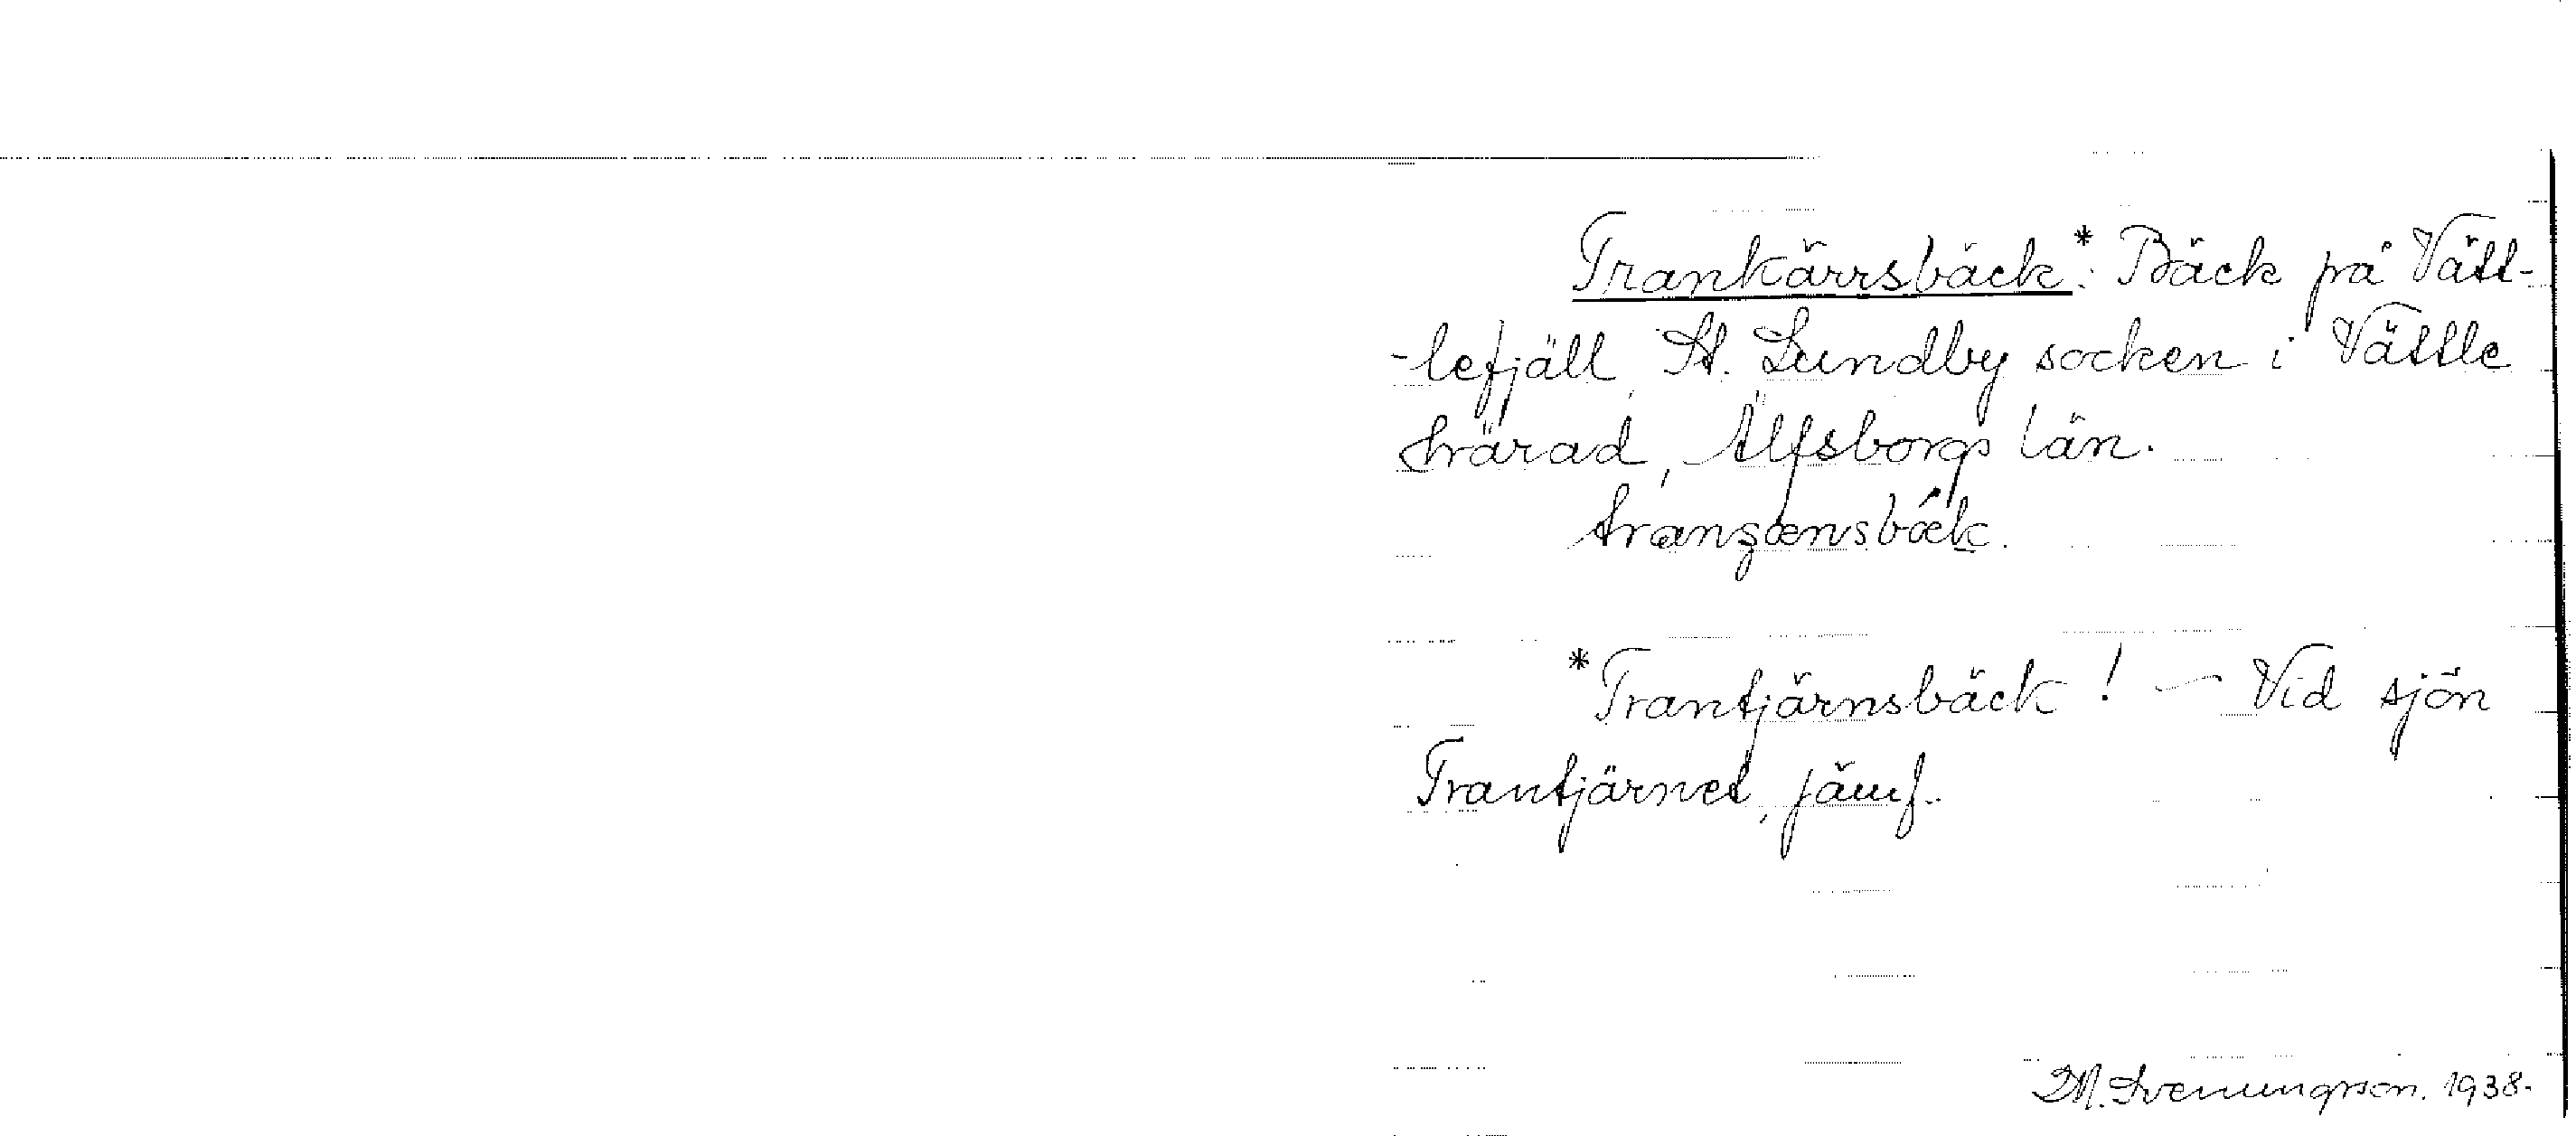 Trankärrsbäck*: Bäck på Vätt-
-lefjäll, St. Lundby socken i Vättle
härad, Älfsborgs län.
*Trantjärnsbäck! — Vid sjön
Trantjärnet, jämf.
M. Svenungsson. 1938.